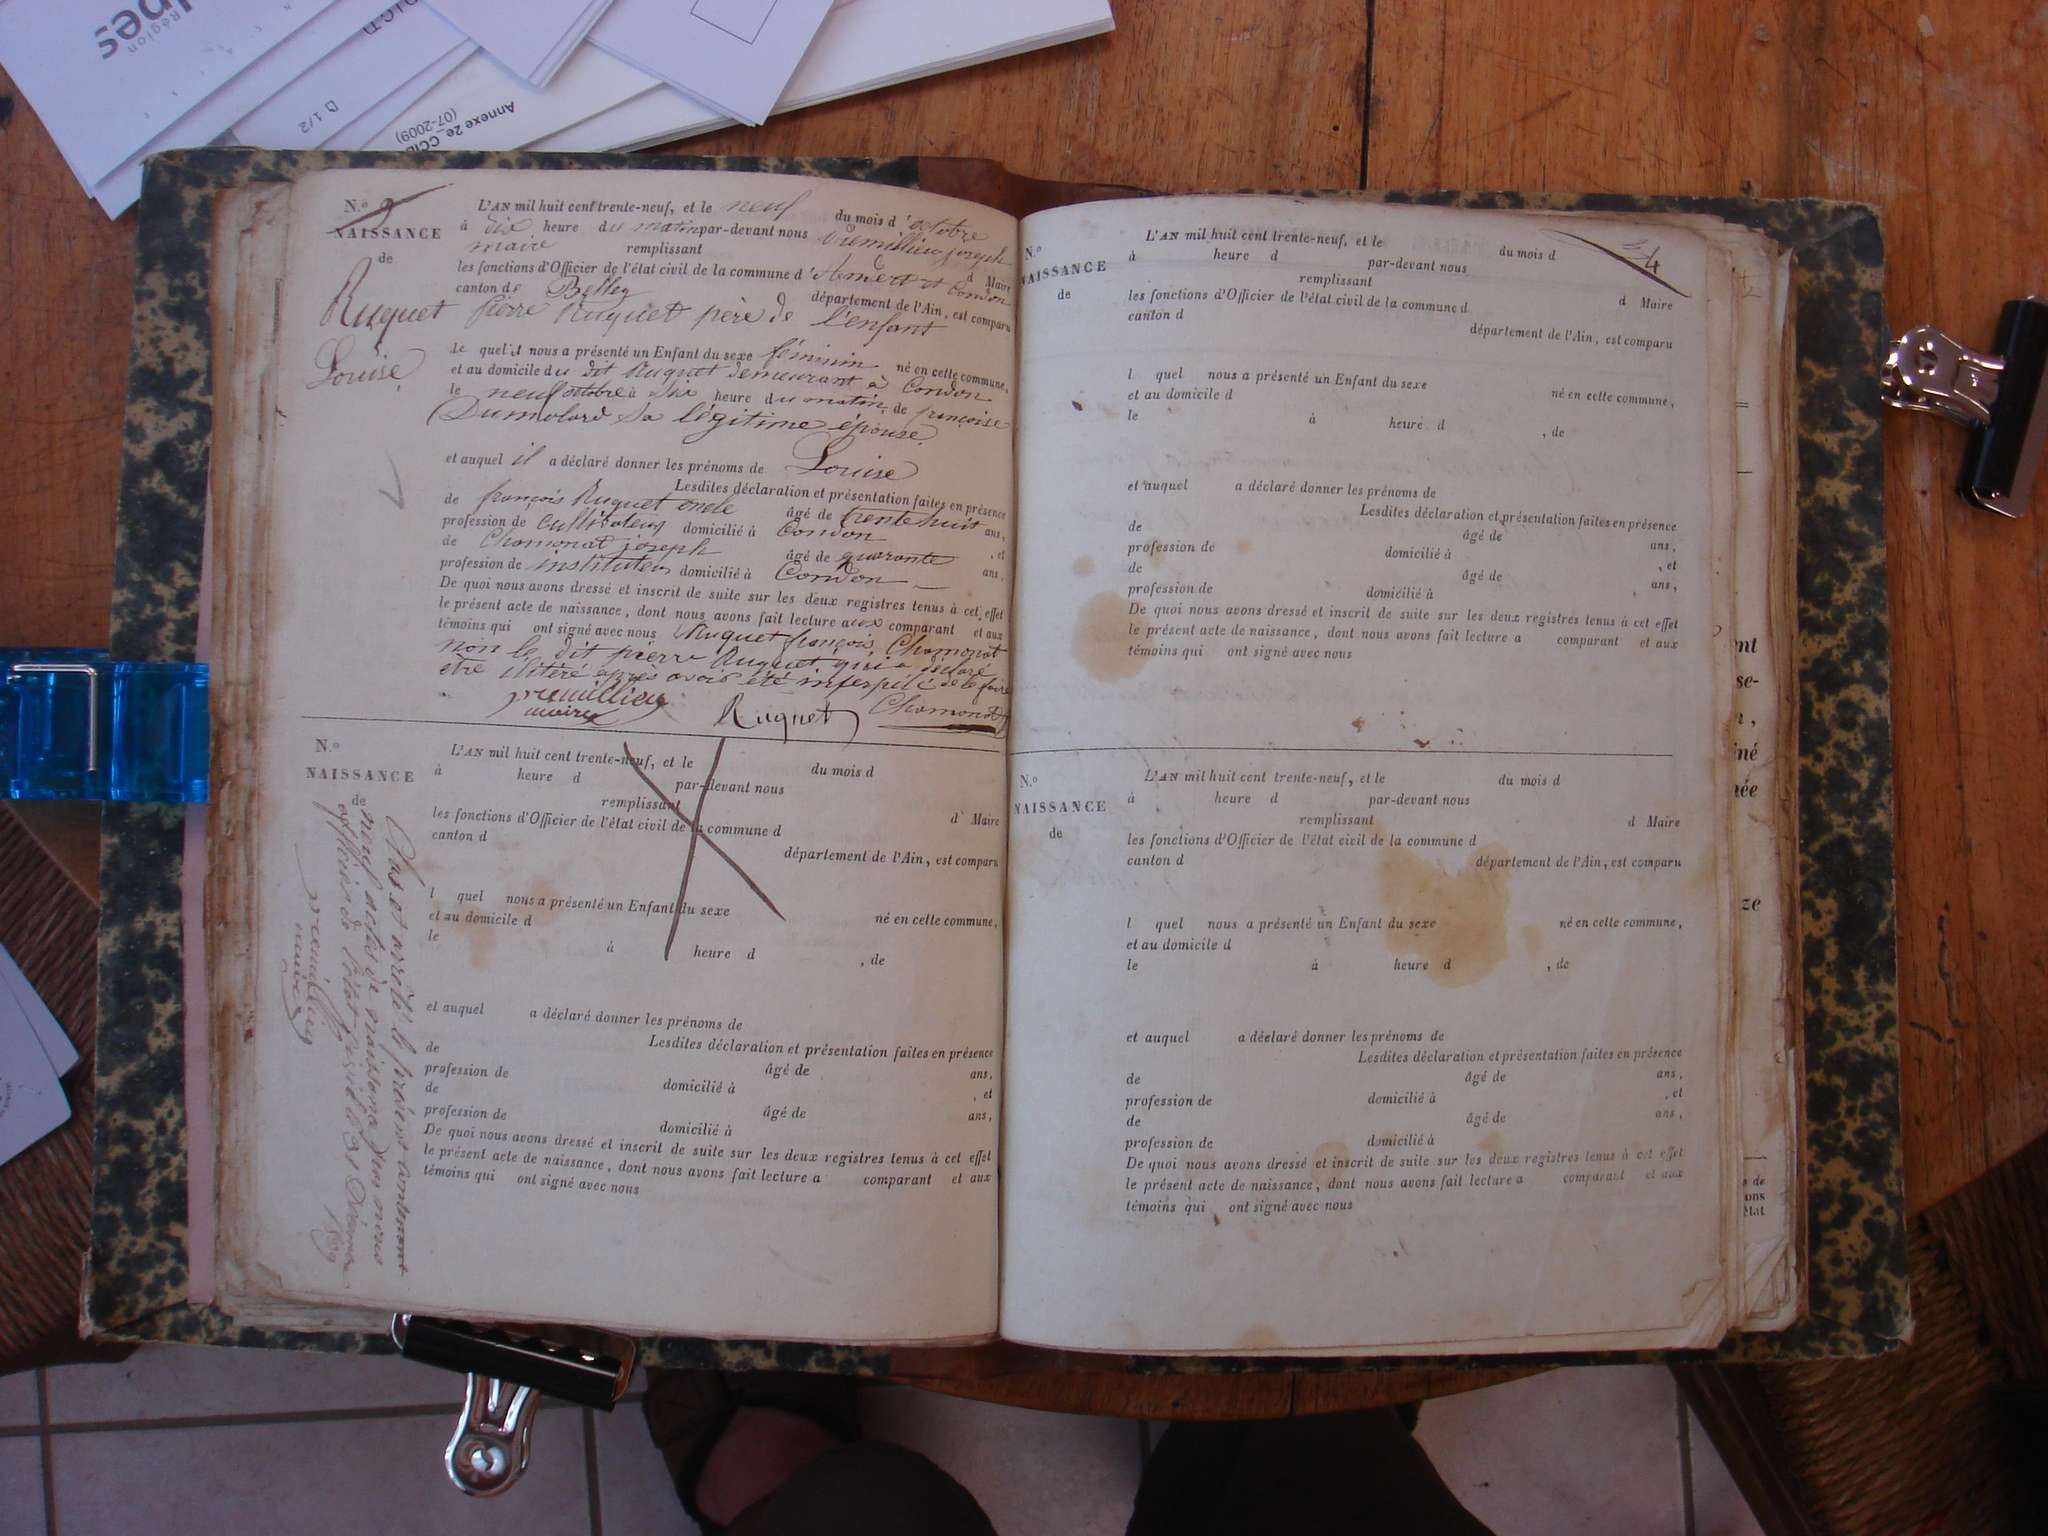 Région
D 1/2
Annexe 2e_CCIB
(07-2009)
N.º 9
NAISSANCE
de
Ruquet
Louise
L'AN mil huit cent trente-neuf, et le neuf du mois d'octobre
à dix heure du matin par-devant nous Vremilliux joseph
maire remplissant
les fonctions d'Officier de l'état civil de la commune d' et Condon d Maire
canton de Belley département de l'Ain, est comparu
pierre Ruquet père de l'enfant
le quel il nous a présenté un Enfant du sexe féminin né en cette commune,
et au domicile du dit Ruquet demeurant à Condon
le neuf octobre à six heure du matin, de françoise
Dumolard sa légitime épouse
et auquel il a déclaré donner les prénoms de Louise
Lesdites déclaration et présentation faites en présence
de françois Ruquet oncle âgé de trente huit ans,
profession de cultivateur domicilié à Condon , et
de Chamonat joseph âgé de quarante ans,
profession de instituteur domicilié à Condon
De quoi nous avons dressé et inscrit de suite sur les deux registres tenus à cet effet
le présent acte de naissance, dont nous avons fait lecture aux comparant et aux
témoins qui ont signé avec nous Ruquet françois, Chamonat
non le dit pierre Ruquet qui a déclaré
etre illitéré après avoir été interpellé de le faire
maire
Ruquet
Chamonat
N.º
NAISSANCE
de
L'AN mil huit cent trente-neuf, et le du mois d
à heure d par-devant nous
remplissant
les fonctions d'Officier de l'état civil de la commune d d' Maire
canton d département de l'Ain, est comparu
l quel nous a présenté un Enfant du sexe né en cette commune,
et au domicile d
le à heure d , de
et auquel a déclaré donner les prénoms de
Lesdites déclaration et présentation faites en présence
de âgé de ans,
profession de domicilié à , et
de âgé de ans,
profession de domicilié à
De quoi nous avons dressé et inscrit de suite sur les deux registres tenus à cet effet
le présent acte de naissance, dont nous avons fait lecture a comparant et aux
témoins qui ont signé avec nous
Clos et arrêté le présent contenant
neuf actes de naissance par nous
officier de l'état civil le 31 Décembre
1839
maire
4
N.º
NAISSANCE
de
L'AN mil huit cent trente-neuf, et le du mois d
à heure d par-devant nous
remplissant
les fonctions d'Officier de l'état civil de la commune d d Maire
canton d département de l'Ain, est comparu
l quel nous a présenté un Enfant du sexe
et au domicile d né en cette commune,
le à heure d , de
et auquel a déclaré donner les prénoms de
Lesdites déclaration et présentation faites en présence
de âgé de ans,
profession de domicilié à , et
de âgé de ans,
profession de domicilié à
De quoi nous avons dressé et inscrit de suite sur les deux registres tenus à cet effet
le présent acte de naissance, dont nous avons fait lecture a comparant et aux
témoins qui ont signé avec nous
N.º
NAISSANCE
de
L'AN mil huit cent trente-neuf, et le du mois d
à heure d par-devant nous
remplissant d Maire
les fonctions d'Officier de l'état civil de la commune d
canton d département de l'Ain, est comparu
l quel nous a présenté un Enfant du sexe né en cette commune,
et au domicile d
le à heure d , de
et auquel a déclaré donner les prénoms de
Lesdites déclaration et présentation faites en présence
de âgé de ans,
profession de domicilié à , et
de âgé de ans,
profession de domicilié à
De quoi nous avons dressé et inscrit de suite sur les deux registres tenus à cet effet
le présent acte de naissance, dont nous avons fait lecture a comparant et aux
témoins qui ont signé avec nous